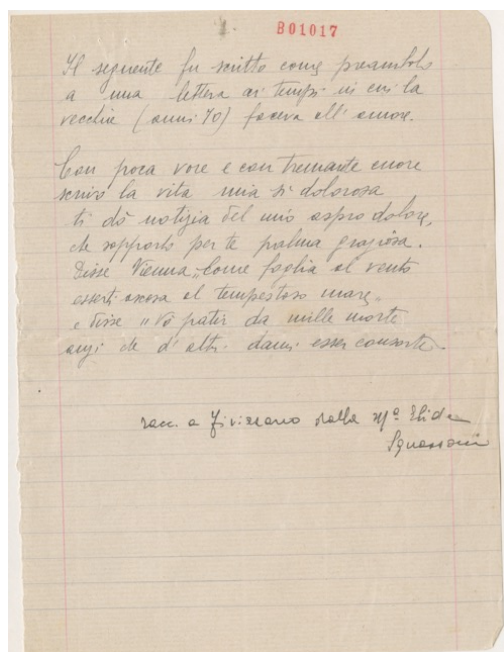 1. B01017
Il seguente fu scritto come preambolo
a una lettera ai tempi in cui la
vecchia (anni 70) faceva all'amore.
Con poca voce e con tremante cuore
scrivo la vita mia sì dolorosa
ti dò notizia del mio aspro dolore,
che sopporto per te palma graziosa.
Disse Vienna „Come foglia al vento
esserti al tempestoso mare„
e disse „Vò patir da mille morte
anzi che d'altri dami esser consorte.
racc. a Fivizzano dalla Mª Elida
Squassoni